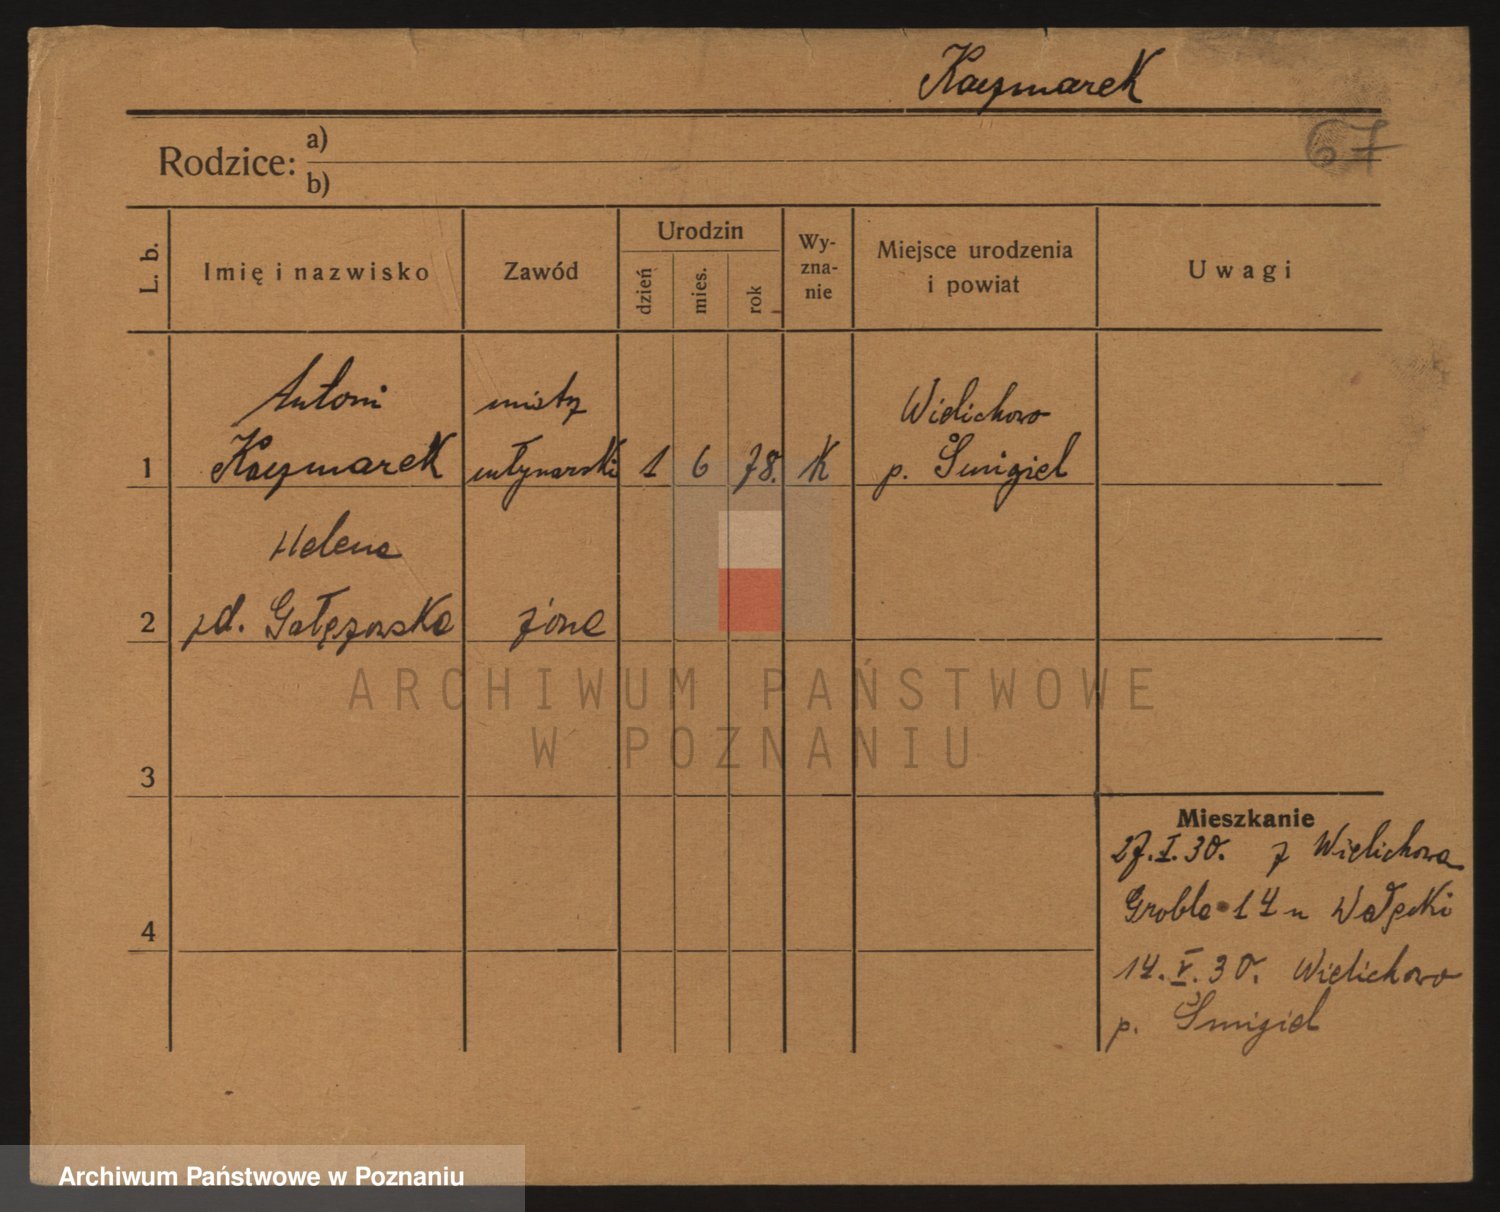 Kaczmarek
67
Rodzice: a)
b)
L. b.
Imię i nazwisko
Zawód
Urodzin
dzień
mies.
rok
Wy-
zna-
nie
Miejsce urodzenia
i powiat
Uwagi
Antoni mistrz Wielichowo
1 Kaczmarek młynarski 1 6 78. K p. Śmigiel
Helena
2 zd. Gałęzowska żona
3
4
Mieszkanie
27.I.30. z Wielichowa
Grobla 14 u Wałęcki
14.V.30. Wielichowo
p. Śmigiel
ARCHIWUM PAŃSTWOWE
W POZNANIU
Archiwum Państwowe w Poznaniu